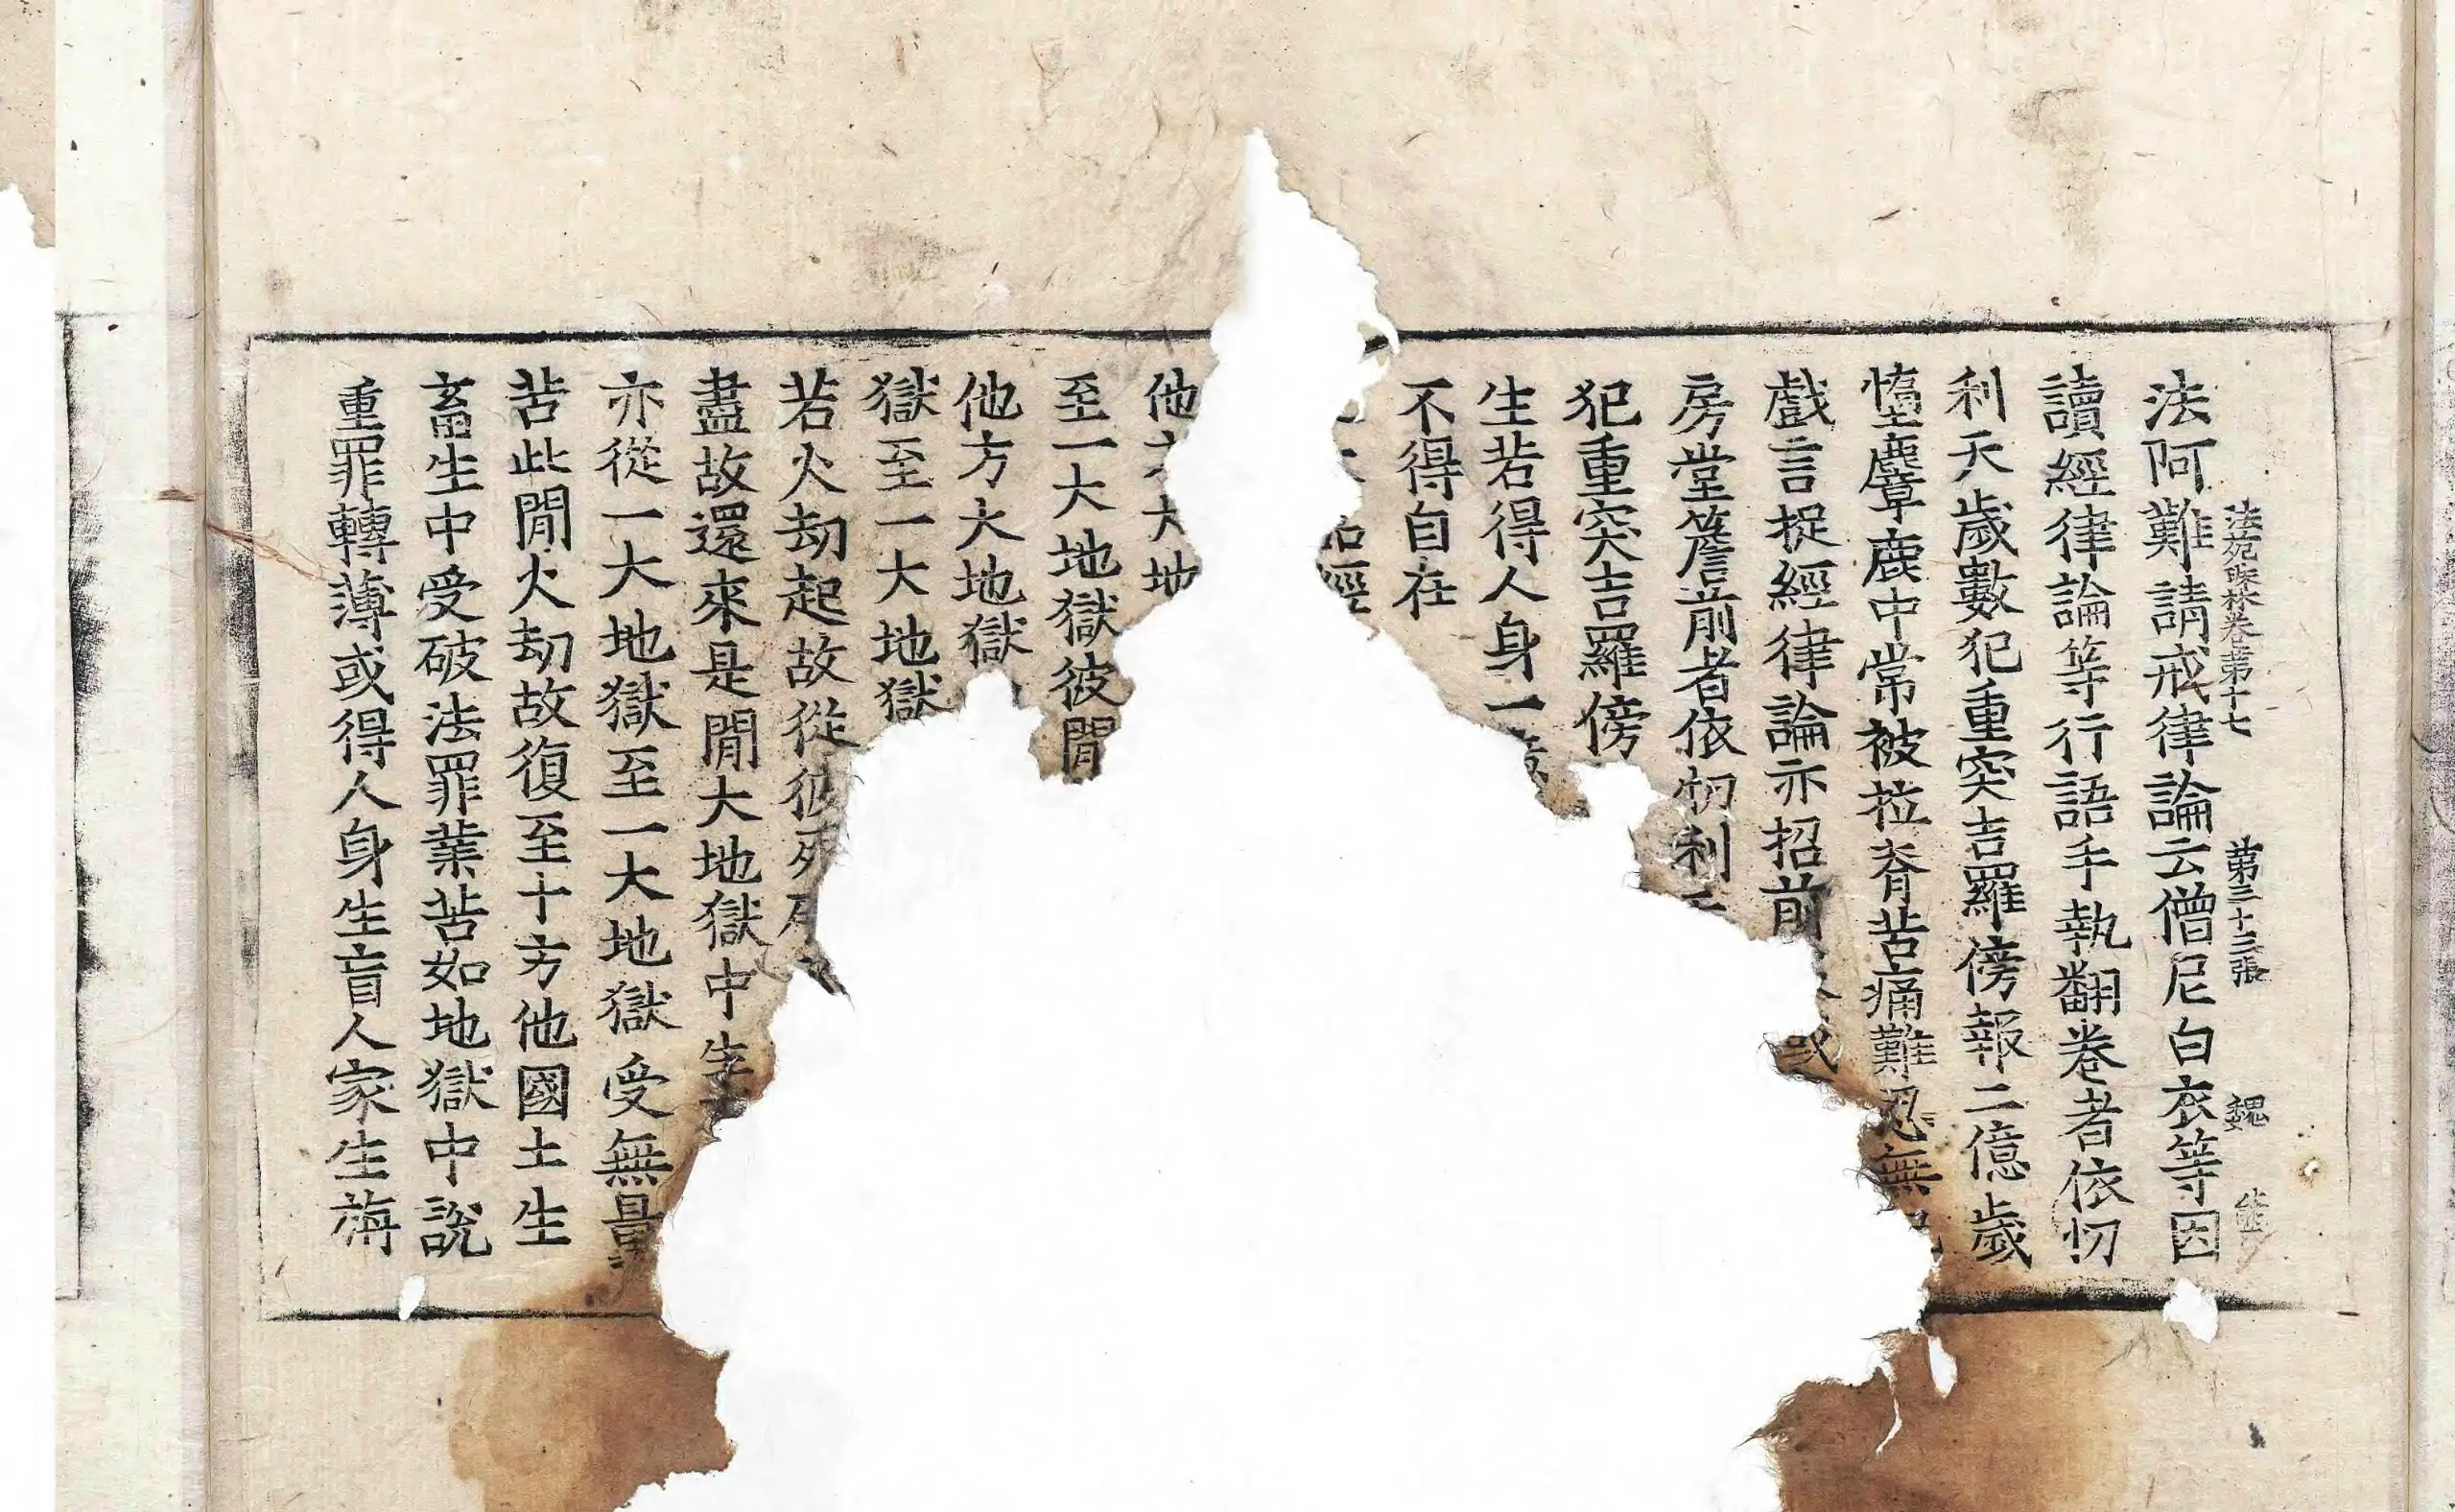 法苑珠林卷第十七 第三十三張 魏
法阿難請戒律論云僧尼白衣等因
讀經律論等行語手執翻卷者依忉
利天歲數犯重突吉羅傍報二億歲
墮麞鹿中常被拉脊苦痛難忍無
戲言捉經律論亦招前 或
房堂簷前者依忉利
犯重突吉羅傍
生若得人身一
不得自在
經
他方大地
至一大地獄彼閒
他方大地獄
獄至一大地獄
若火劫起故從彼死
盡故還來是閒大地獄中生
亦從一大地獄至一大地獄受無量
苦此閒火劫故復至十方他國土生
畜生中受破法罪業苦如地獄中說
重罪轉薄或得人身生盲人家生旃